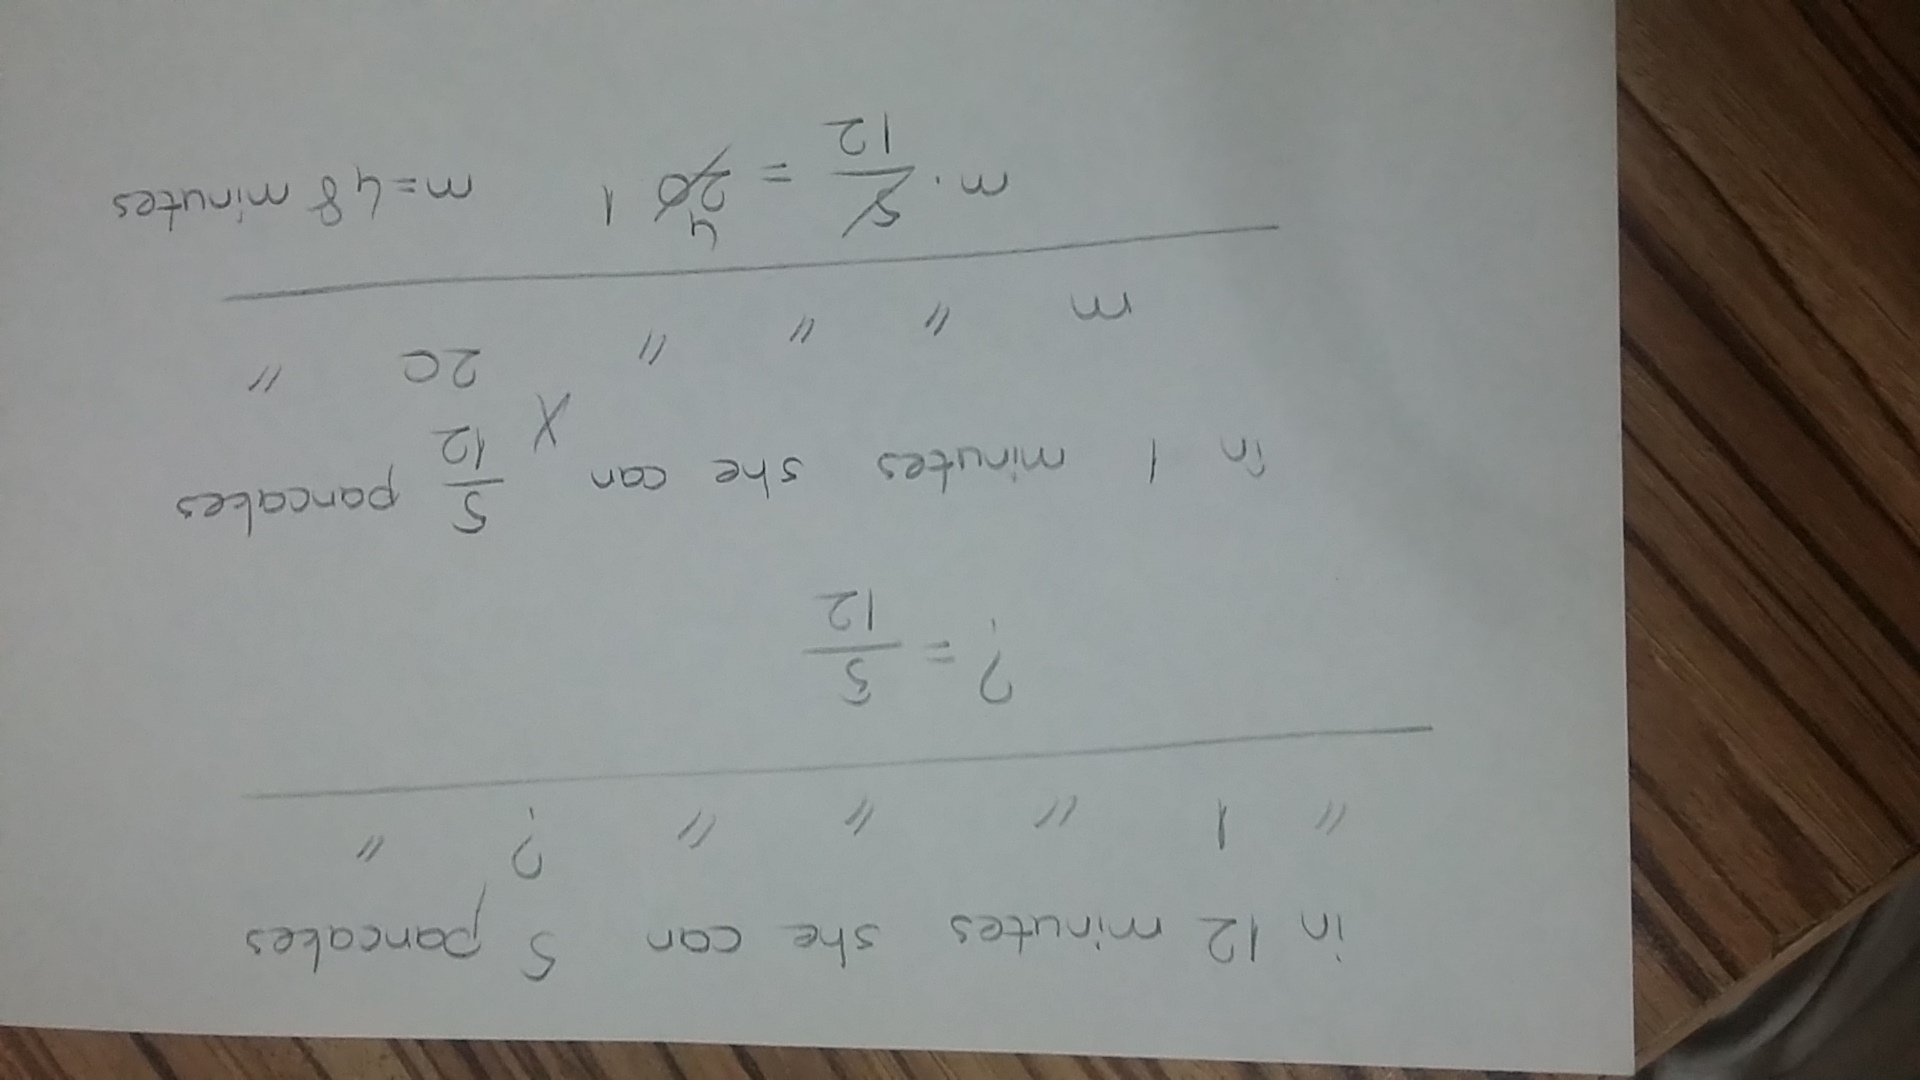 in 12 minutes she can 5 pancakes
" 1 " " " ? "
? = 5/12
in 1 minutes she can 5/12 pancakes
X
m " " " 20 "
m. 5/12 = 20 4 1 m = 48 minutes